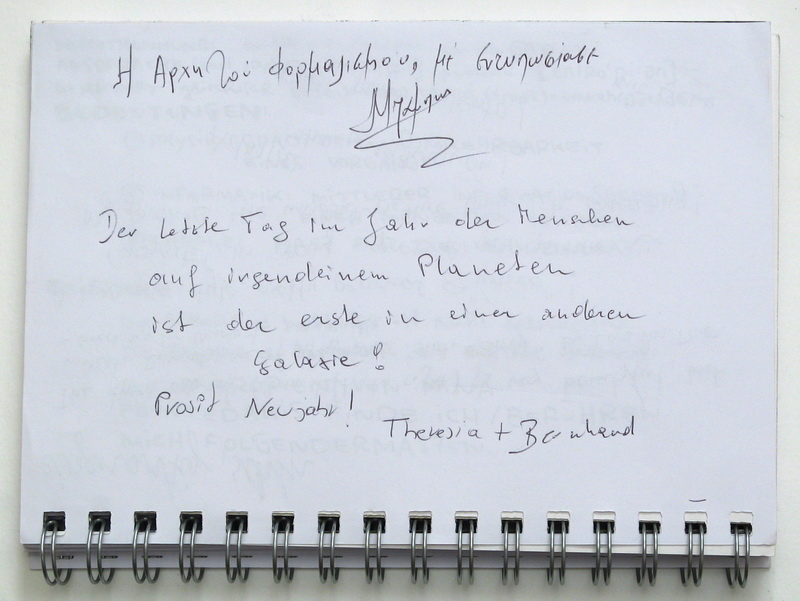 Η Αρχή του φορμαλισμού, με εντυπωσίασε
Der letzte Tag im Jahr der Menschen
auf irgendeinem Planeten
ist der erste in einer anderen
Galaxie!
Prosit Neujahr!
Theresia + Bernhard